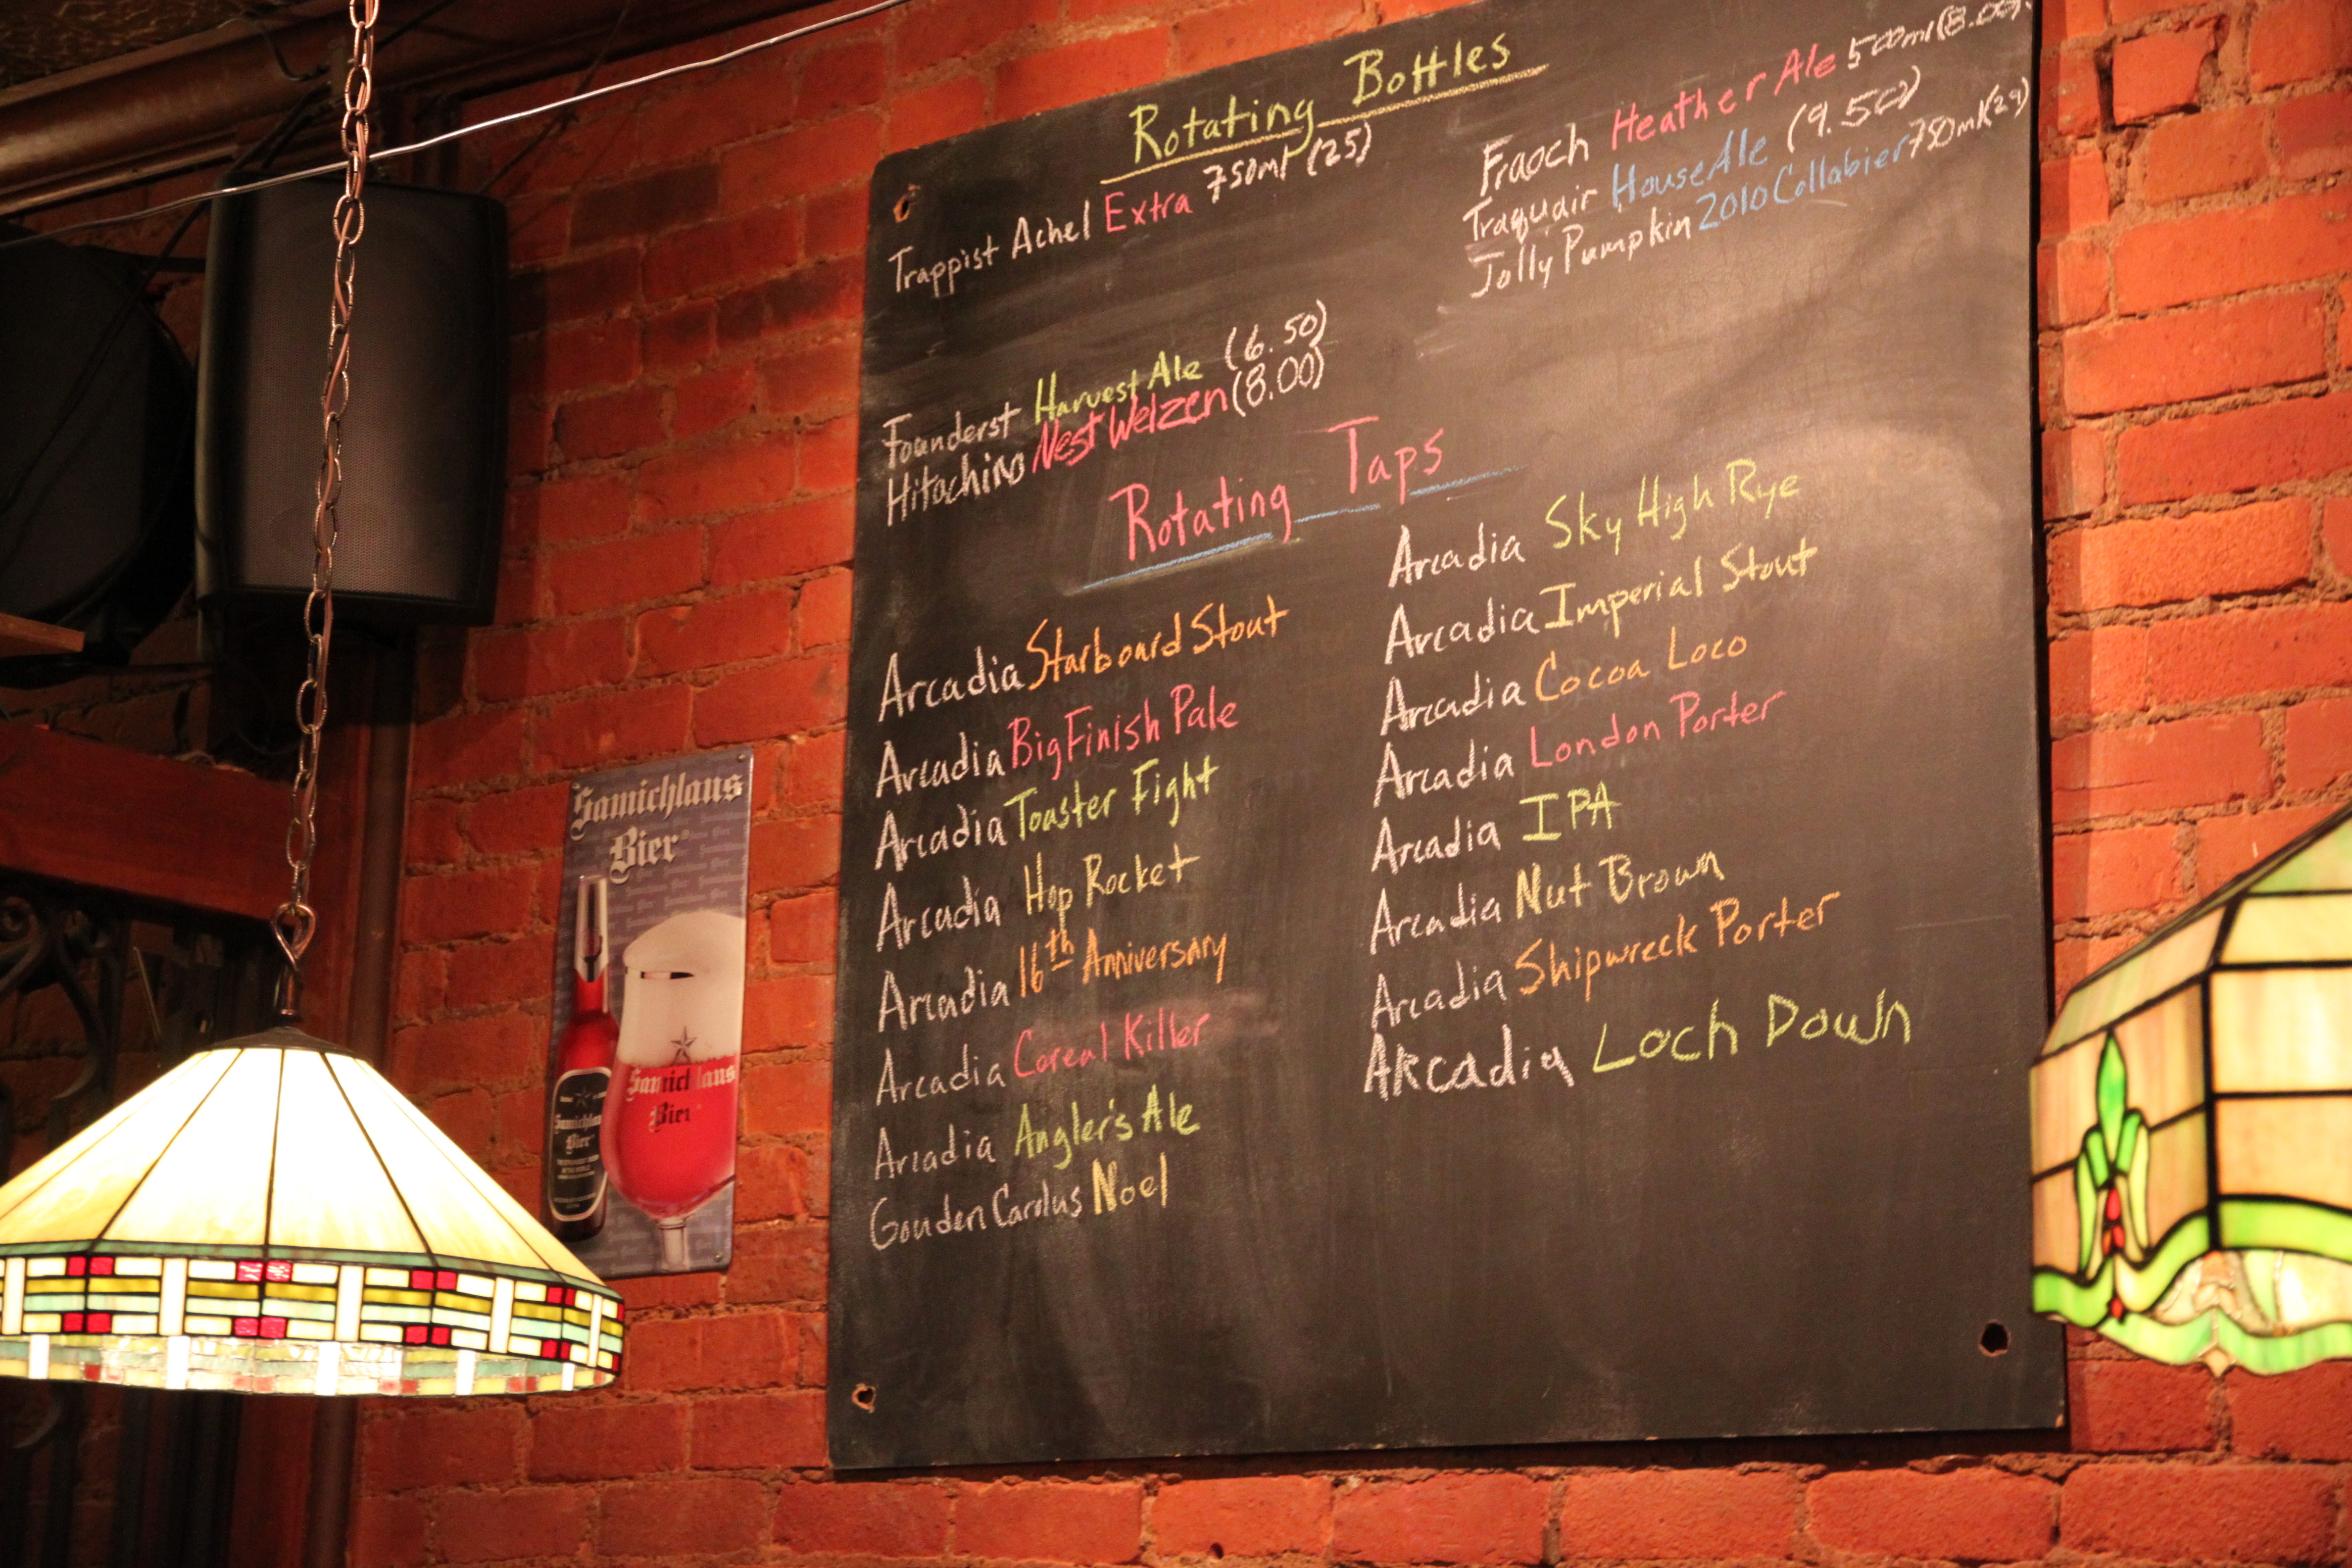 Rotating Bottles
Trappist Achel Extra 750ml (25)
Founderst Harvest Ale (6.50)
Hitachino Nest Weizen (8.00)
Fraoch Heather Ale 500ml (8.00)
Traquair House Ale (9.50)
Jolly Pumpkin 2010 Collabier 750ml (29)
Rotating Taps
Arcadia Starboard Stout
Arcadia Big Finish Pale
Arcadia Toaster Fight
Arcadia Hop Rocket
Arcadia 16th Anniversary
Arcadia Cereal Killer
Arcadia Angler's Ale
Gouden Carolus Noel
Arcadia Sky High Rye
Arcadia Imperial Stout
Arcadia Cocoa Loco
Arcadia London Porter
Arcadia IPA
Arcadia Nut Brown
Arcadia Shipwreck Porter
Arcadia Loch Down
Samichlaus
Bier
Samichlaus
Bier
Samichlaus
Bier